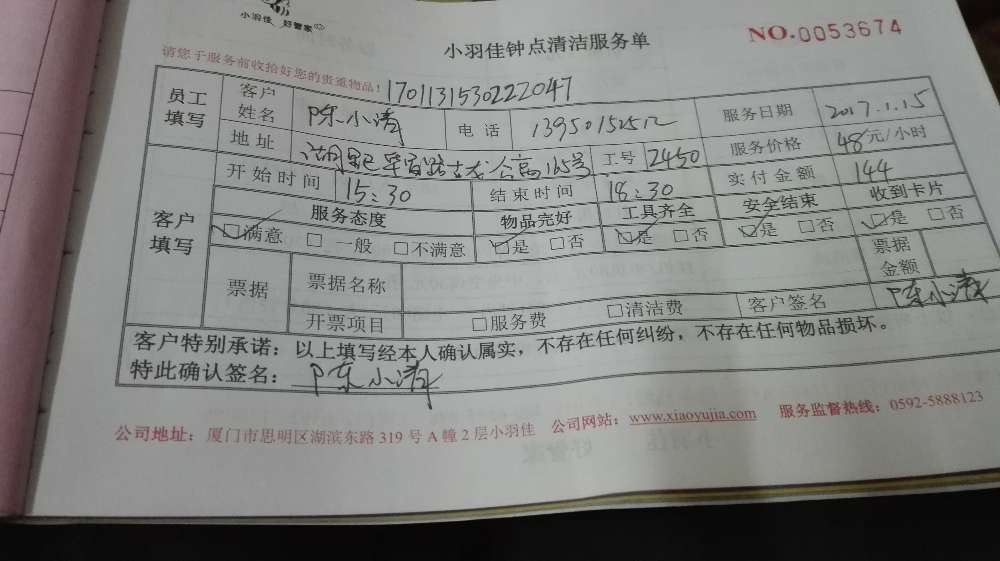 小羽佳 好管家
小羽佳钟点清洁服务单
NO.0053674
请您于服务前收拾好您的贵重物品!
1701131530222047
员工填写 客户姓名 陈小清 电话 服务日期 2017.1.15
地址 工号 2450 服务价格 48元/小时
客户填写 开始时间 15:30 结束时间 18:30 实付金额 144
服务态度 物品完好 工具齐全 安全结束 收到卡片
☑满意 □一般 □不满意 ☑是 □否 ☑是 □否 ☑是 □否 ☑是 □否
票据 票据名称 票据金额
开票项目 □服务费 □清洁费 客户签名 陈小清
客户特别承诺:以上填写经本人确认属实,不存在任何纠纷,不存在任何物品损坏。
特此确认签名: 陈小清
公司地址:厦门市思明区湖滨东路 319 号 A 幢 2 层小羽佳 公司网站:www.xiaoyujia.com 服务监督热线:0592-5888123